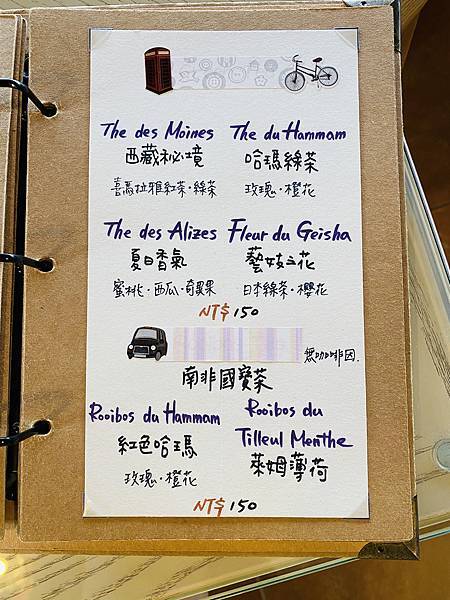 The des Moines
西藏祕境
喜馬拉雅紅茶·綠茶
The du Hammam
哈瑪綠茶
玫瑰·橙花
The des Alizes
夏日香氣
蜜桃·西瓜·奇異果
Fleur du Geisha
藝妓之花
日本綠茶·櫻花
NT$ 150
無咖啡因.
南非國寶茶
Rooibos du Hammam
紅色哈瑪
玫瑰·橙花
Rooibos du
Tilleul Menthe
萊姆薄荷
NT$ 150